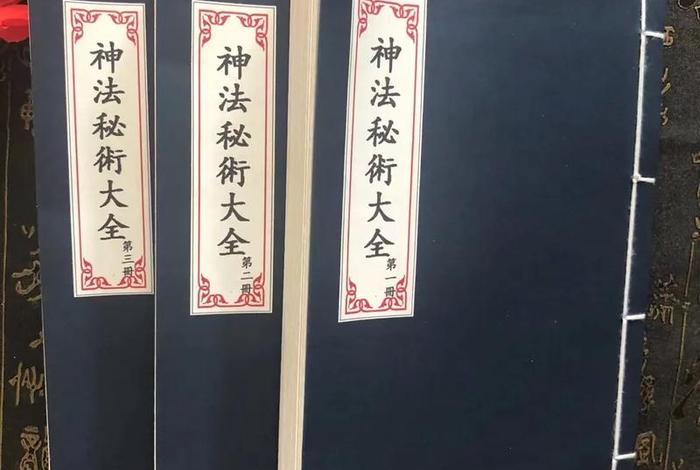 神法秘術大全
第三冊
神法秘術大全
第二冊
神法秘術大全
第一冊